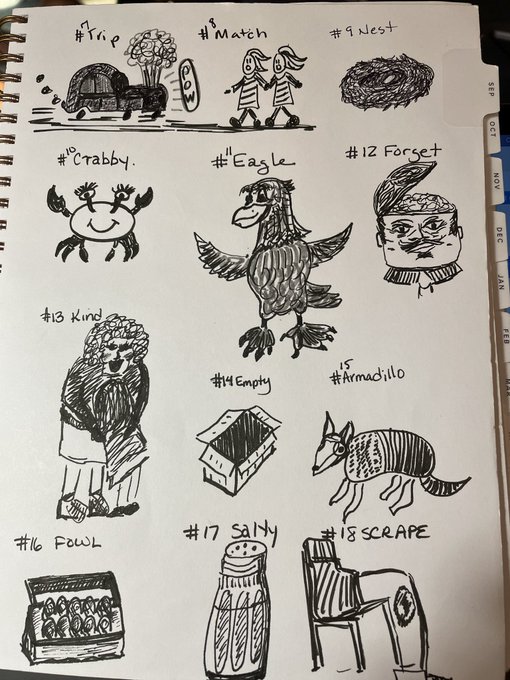 #7 Trip
#8 Match
#9 Nest
POW
#10 Crabby.
#11 Eagle
#12 Forget
#13 Kind
#14 Empty
#15 Armadillo
#16 FOWL
#17 Salty
#18 SCRAPE
SEP
OCT
NOV
DEC
JAN
FEB
MAR